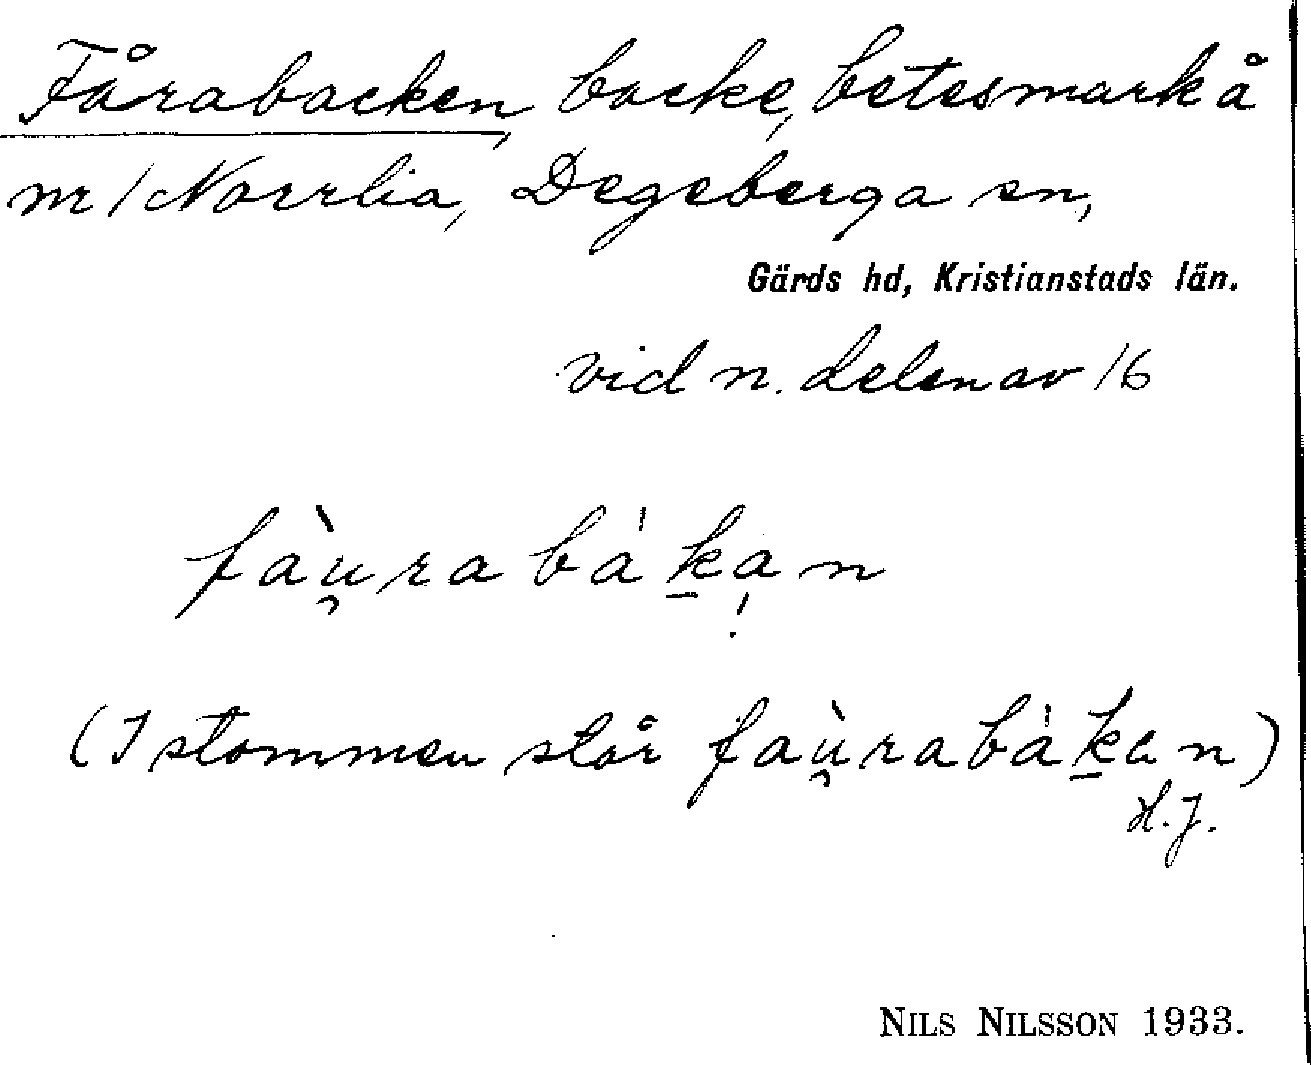 Fårabacken, backe, betesmark å
nr 1 Norrlia, Degeberga sn,
Gärds hd, Kristianstads län.
vid n. delen av 16
fàu̯rabáḵa̤n
(I stommen står faù̯rabáḵan)
H.J.
NILS NILSSON 1933.